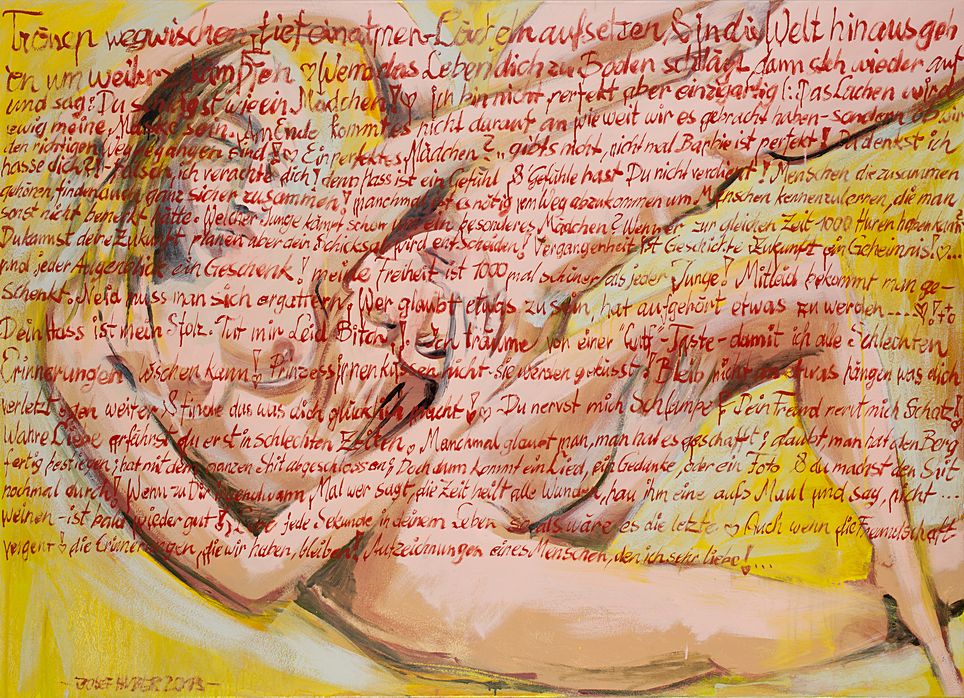 Tränen wegwischen-tief einatmen-Lächeln aufsetzen & in die Welt hinausgeh
en um weiter zu kämpfen ♡ Wenn das Leben dich zu Boden schlägt, dann steh wieder auf
und sag: Du schlägst wie ein Mädchen! ♡ Ich bin nicht perfekt aber einzigartig!: Das Lachen wird
ewig meine Maske sein. Am Ende kommt es nicht darauf an wie weit wir es gebracht haben - sondern ob wir
den richtigen Weg gegangen sind! ♡ Ein perfektes Mädchen?.. gibts nicht, nicht mal Barbie ist perfekt! Du denkst ich
hasse dich?! Falsch, ich verachte dich! denn Hass ist ein Gefühl & Gefühle hast Du nicht verdient! Menschen die zusammen
gehören finden auch ganz sicher zusammen! manchmal ist es nötig vom Weg abzukommen um Menschen kennenzulernen, die man
sonst nicht bemerkt hätte. Welcher Junge kämpft schon für ein besonderes Mädchen? Wenn er zur gleichen Zeit 1000 Huren haben kann?
Du kannst deine Zukunft planen aber dein Schicksal wird entscheiden! Vergangenheit ist Geschichte Zukunft ein Geheimnis! ♡...
und jeder Augenblick ein Geschenk! meine freiheit ist 1000 mal schöner als jeder Junge! Mitleid bekommt man ge-
schenkt. Neid muss man sich ergattern! Wer glaubt etwas zu sein, hat aufgehört etwas zu werden....♡!
Dein Hass ist mein Stolz. Tut mir Leid! Ich träume von einer "Entf"-Taste-damit ich alle Schlechten
Erinnerungen löschen kann! Prinzessinnen küssen nicht-sie werden geküsst! Bleib nicht an etwas hängen was dich
verletzt gehen weiter & finde das was dich glücklich macht! ♡ Du nervst mich Schlampe! Dein Freund nervt mich Schatz!
Wahre Liebe erfährst du erst in schlechten Zeiten. Manchmal glaubt man, man hat es geschafft! glaubt man hat den Berg
fertig bestiegen; hat mit dem ganzen Shit abgeschlossen! Doch dann kommt ein Lied, ein Gedanke, oder ein Foto & du machst den Shit
nochmal durch! Wenn zu Dir irgendwann Mal wer sagt, die Zeit heilt alle Wunden, hau ihm eine aufs Maul und sag, nicht ...
weinen-ist bald wieder gut! jede Sekunde in deinem Leben so als wäre es die letzte ♡ Auch wenn die Freundschaft
vergeht! die Erinnerungen, die wir haben, bleiben! Aufzeichnungen eines Menschen, den ich sehr liebe!...
- JOSEF HUBER 2013 -